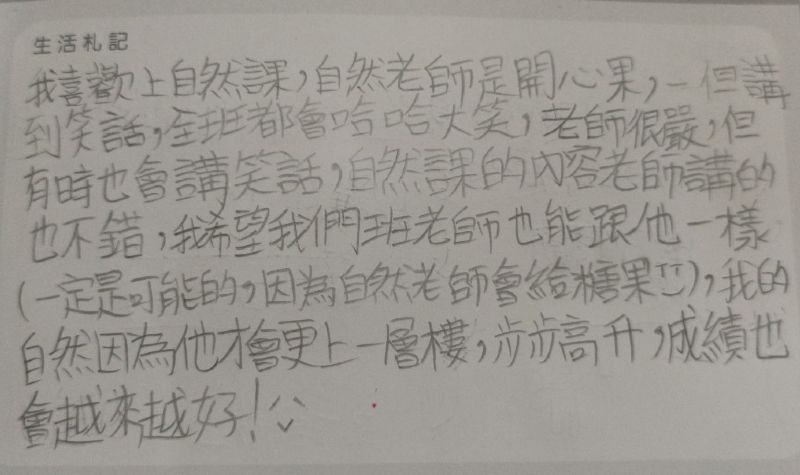 生活札記
我喜歡上自然課，自然老師是開心果，一但講
到笑話，全班都會哈哈大笑，老師很嚴，但
有時也會講笑話，自然課的內容老師講的
也不錯，我希望我們班老師也能跟他一樣
(一定是可能的，因為自然老師會給糖果)，我的
自然因為他才會更上一層樓，步步高升，成績也
會越來越好！